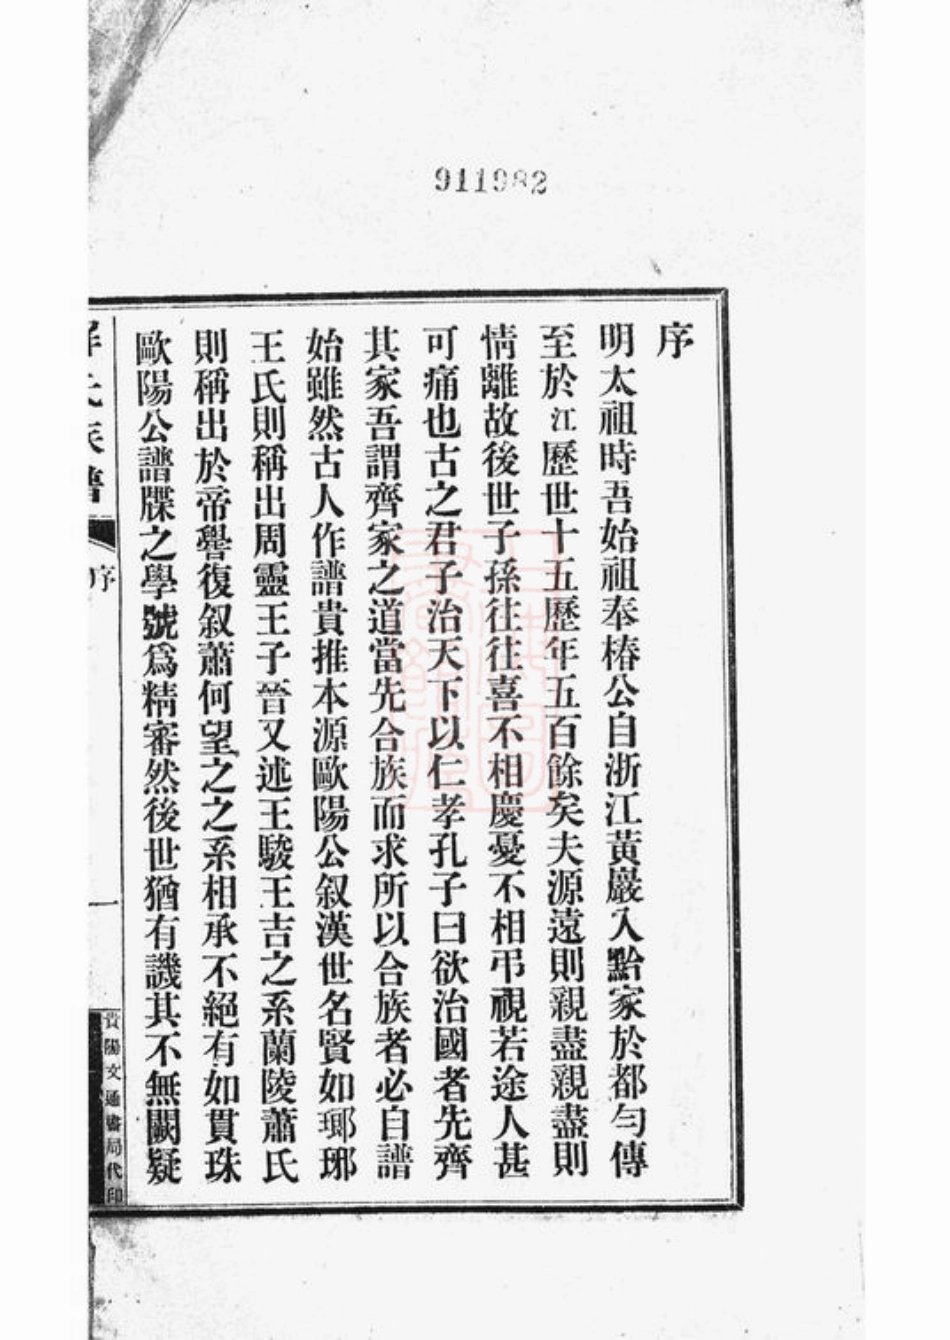 911982
序
明太祖時吾始祖奉椿公自浙江黃巖入黔家於都勻傳
至於江歷世十五歷年五百餘矣夫源遠則親盡親盡則
情離故後世子孫往往喜不相慶憂不相弔視若途人甚
可痛也古之君子治天下以仁孝孔子曰欲治國者先齊
其家吾謂齊家之道當先合族而求所以合族者必自譜
始雖然古人作譜貴推本源歐陽公叙漢世名賢如瑯琊
王氏則稱出周靈王子晉又述王駿王吉之系蘭陵蕭氏
則稱出於帝嚳復叙蕭何望之之系相承不絕有如貫珠
歐陽公譜牒之學號爲精審然後世猶有譏其不無闕疑
氏族譜
序
一
貴陽文通書局代印